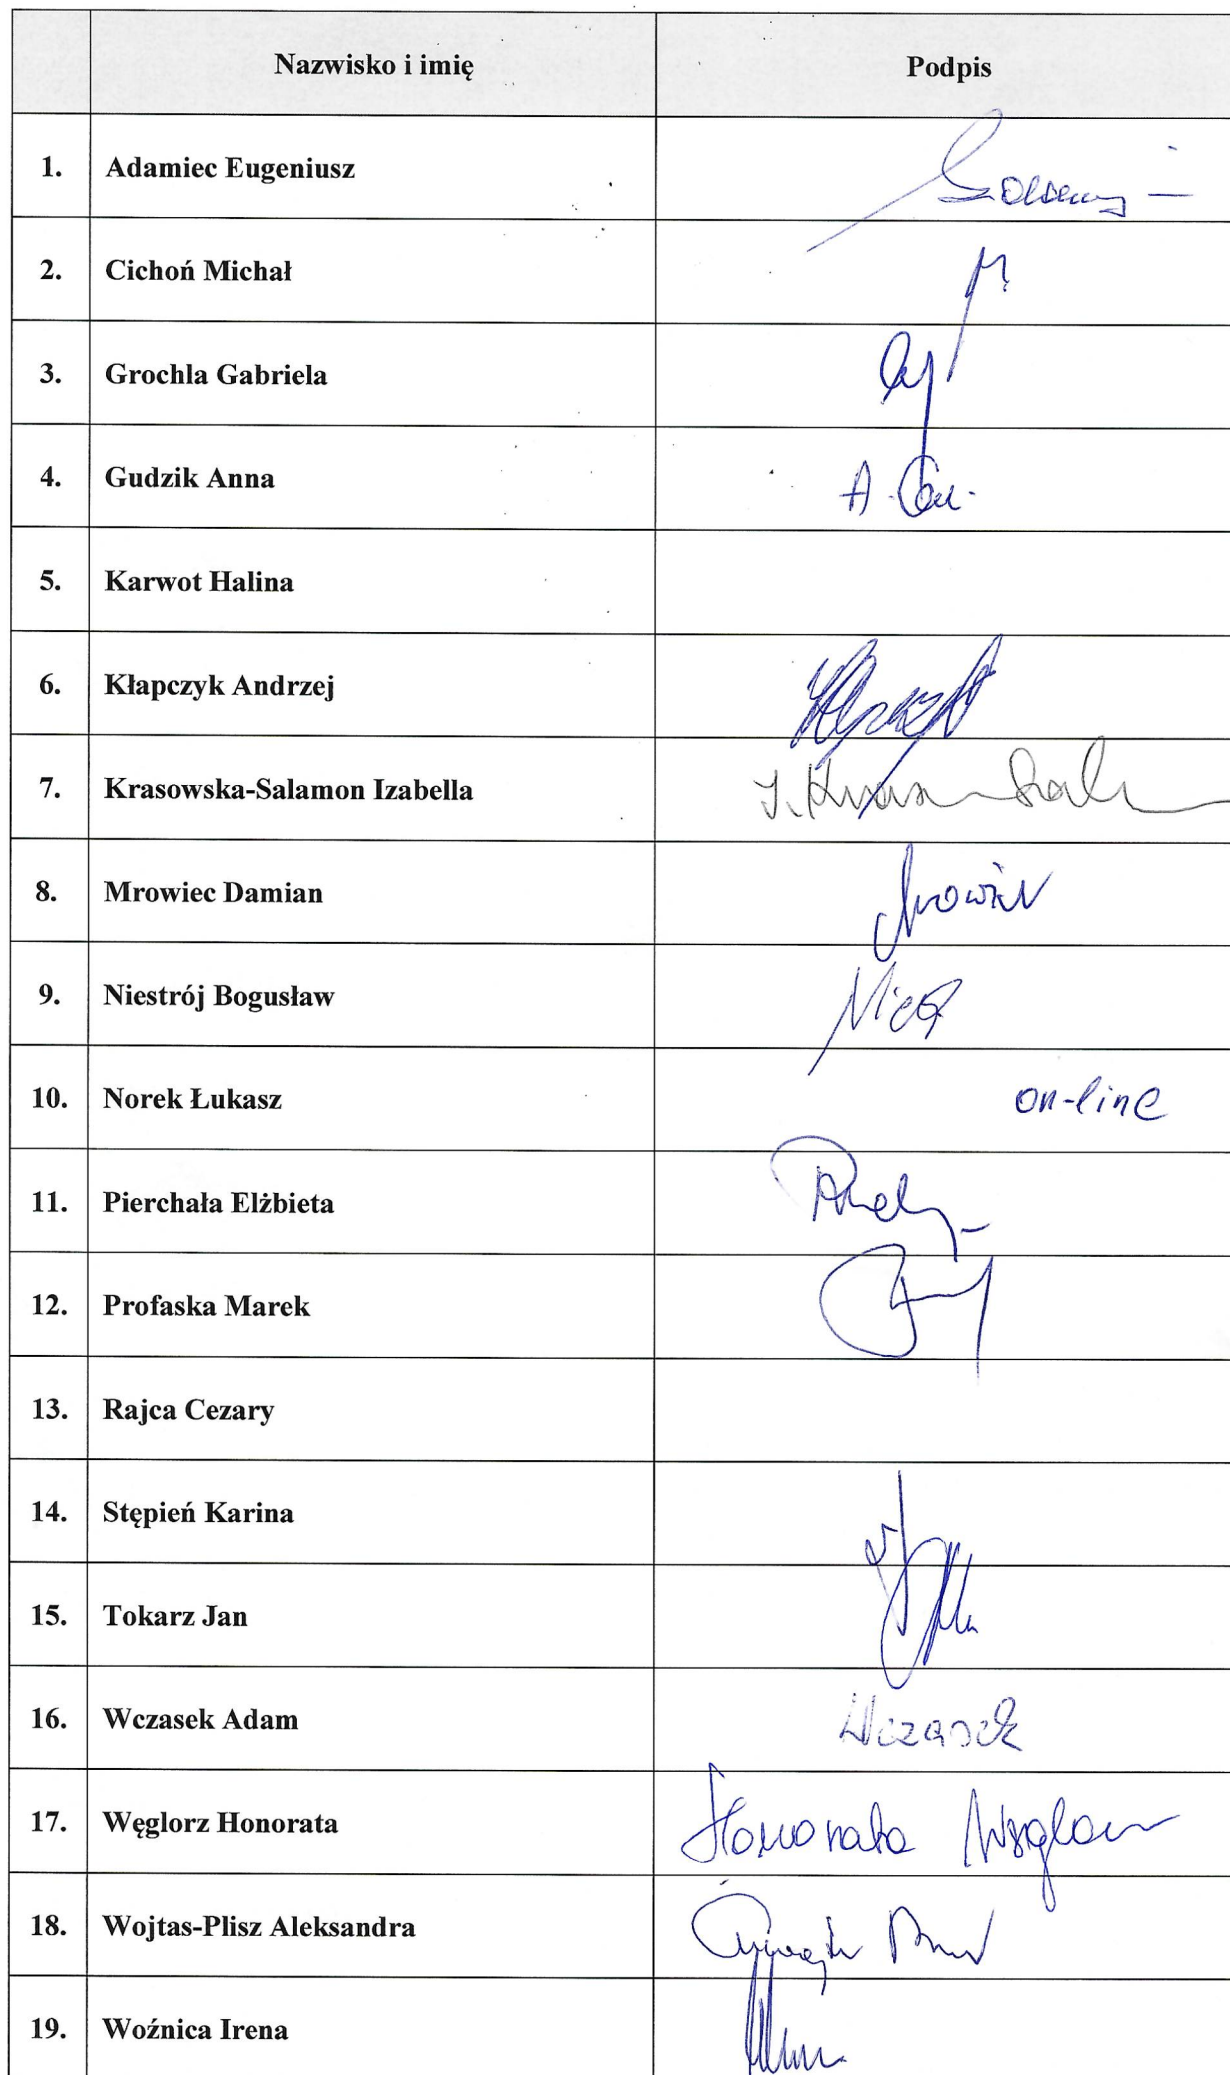 Nazwisko i imię Podpis
1. Adamiec Eugeniusz
2. Cichoń Michał
3. Grochla Gabriela
4. Gudzik Anna A.
5. Karwot Halina
6. Kłapczyk Andrzej
7. Krasowska-Salamon Izabella
8. Mrowiec Damian
9. Niestrój Bogusław
10. Norek Łukasz on-line
11. Pierchała Elżbieta
12. Profaska Marek
13. Rajca Cezary
14. Stępień Karina
15. Tokarz Jan
16. Wczasek Adam Wczasek
17. Węglorz Honorata Honorata
18. Wojtas-Plisz Aleksandra
19. Woźnica Irena